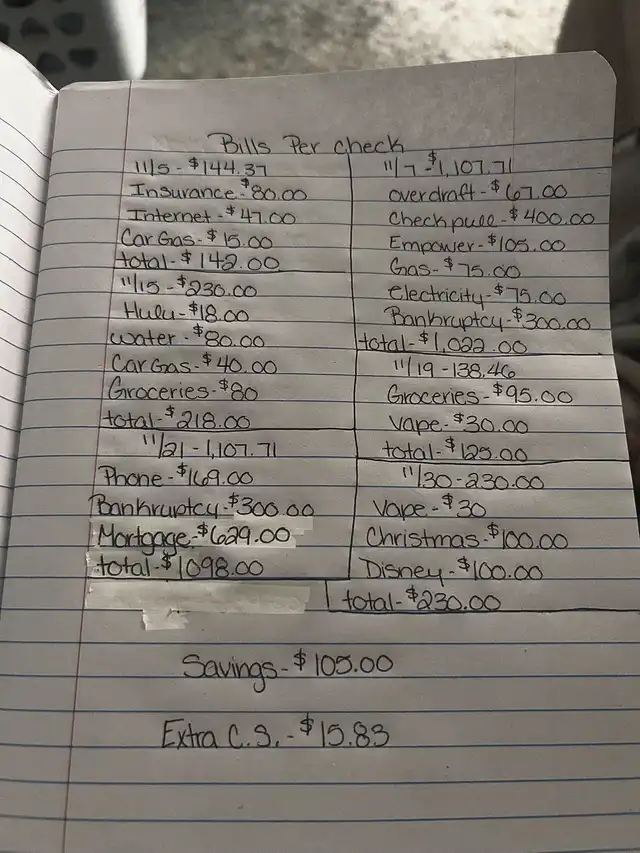 Bills Per check
11/5 - $144.37
Insurance - $80.00
Internet - $47.00
Car Gas - $15.00
total - $142.00
11/15 - $230.00
Hulu - $18.00
water - $80.00
Car Gas - $40.00
Groceries - $80
total - $218.00
11/21 - 1,107.71
Phone - $169.00
Bankruptcy - $300.00
Mortgage - $629.00
total - $1098.00
11/7 - $1,107.71
overdraft - $67.00
Check pull - $400.00
Empower - $105.00
Gas - $75.00
electricity - $75.00
Bankruptcy - $300.00
total - $1,022.00
11/19 - 138.46
Groceries - $95.00
Vape - $30.00
total - $125.00
11/30 - 230.00
Vape - $30
Christmas - $100.00
Disney - $100.00
total - $230.00
Savings - $105.00
Extra C.S. - $15.83